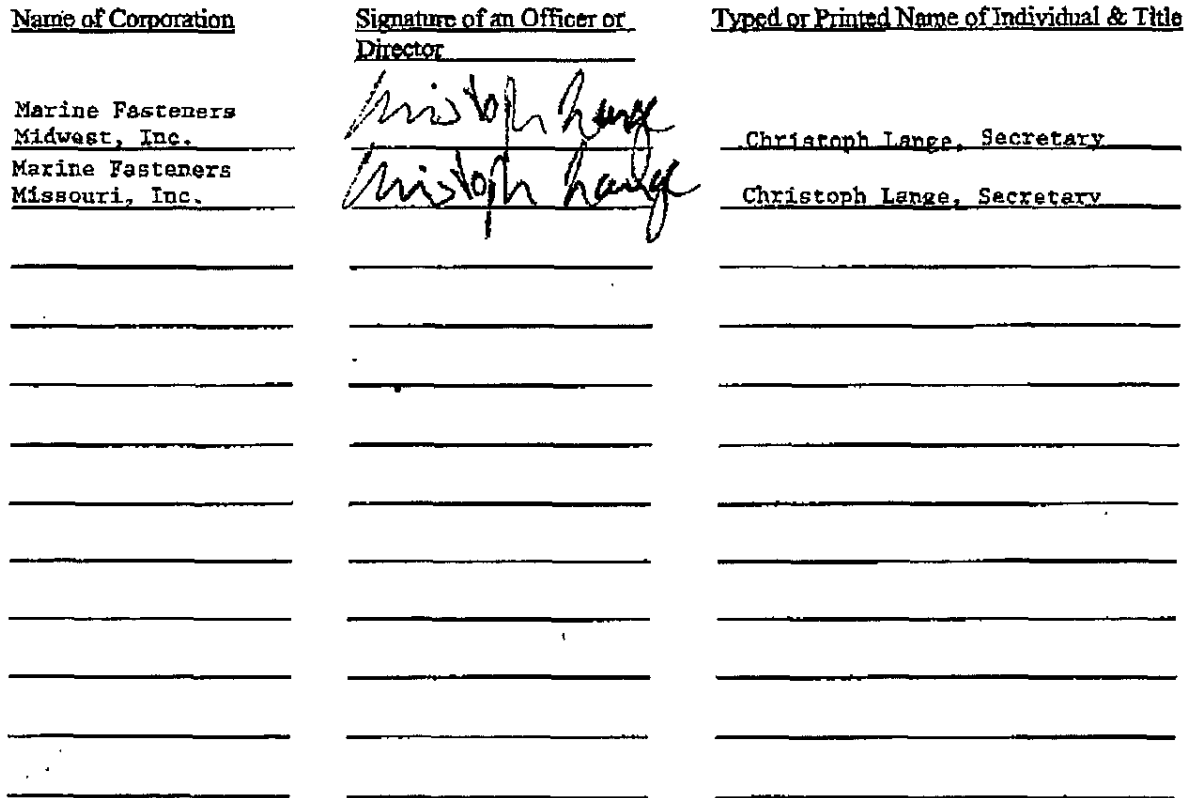 Name of Corporation
Signature of an Officer or
Director
Typed or Printed Name of Individual & Title
Marine Fasteners
Midwest, Inc.
Christoph Lange
Christoph Lange, Secretary
Marine Fasteners
Missouri, Inc.
Christoph Lange
Christoph Lange, Secretary